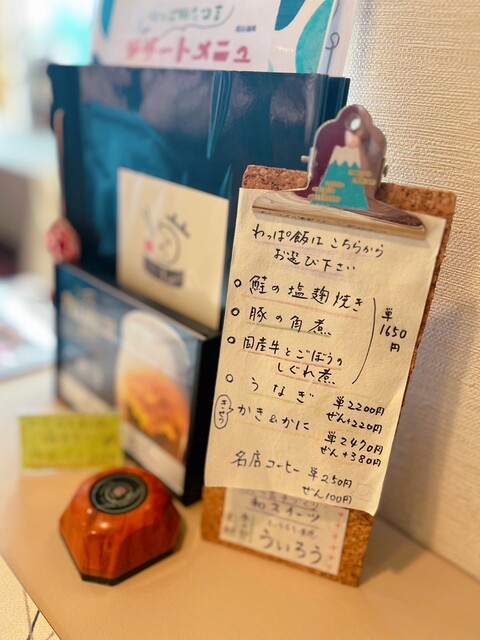 デザートメニュー
わっぱ飯は こちらから
お選び下さい
○ 鮭の塩麹焼き
○ 豚の角煮
○ 国産牛とごぼうの
しぐれ煮
単
1650
円
○ うなぎ 単2200円
ぜん+220円
かき&かに 単2470円
ぜん+380円
名店コーヒー 単250円
ぜん100円
和スイーツ
ういろう